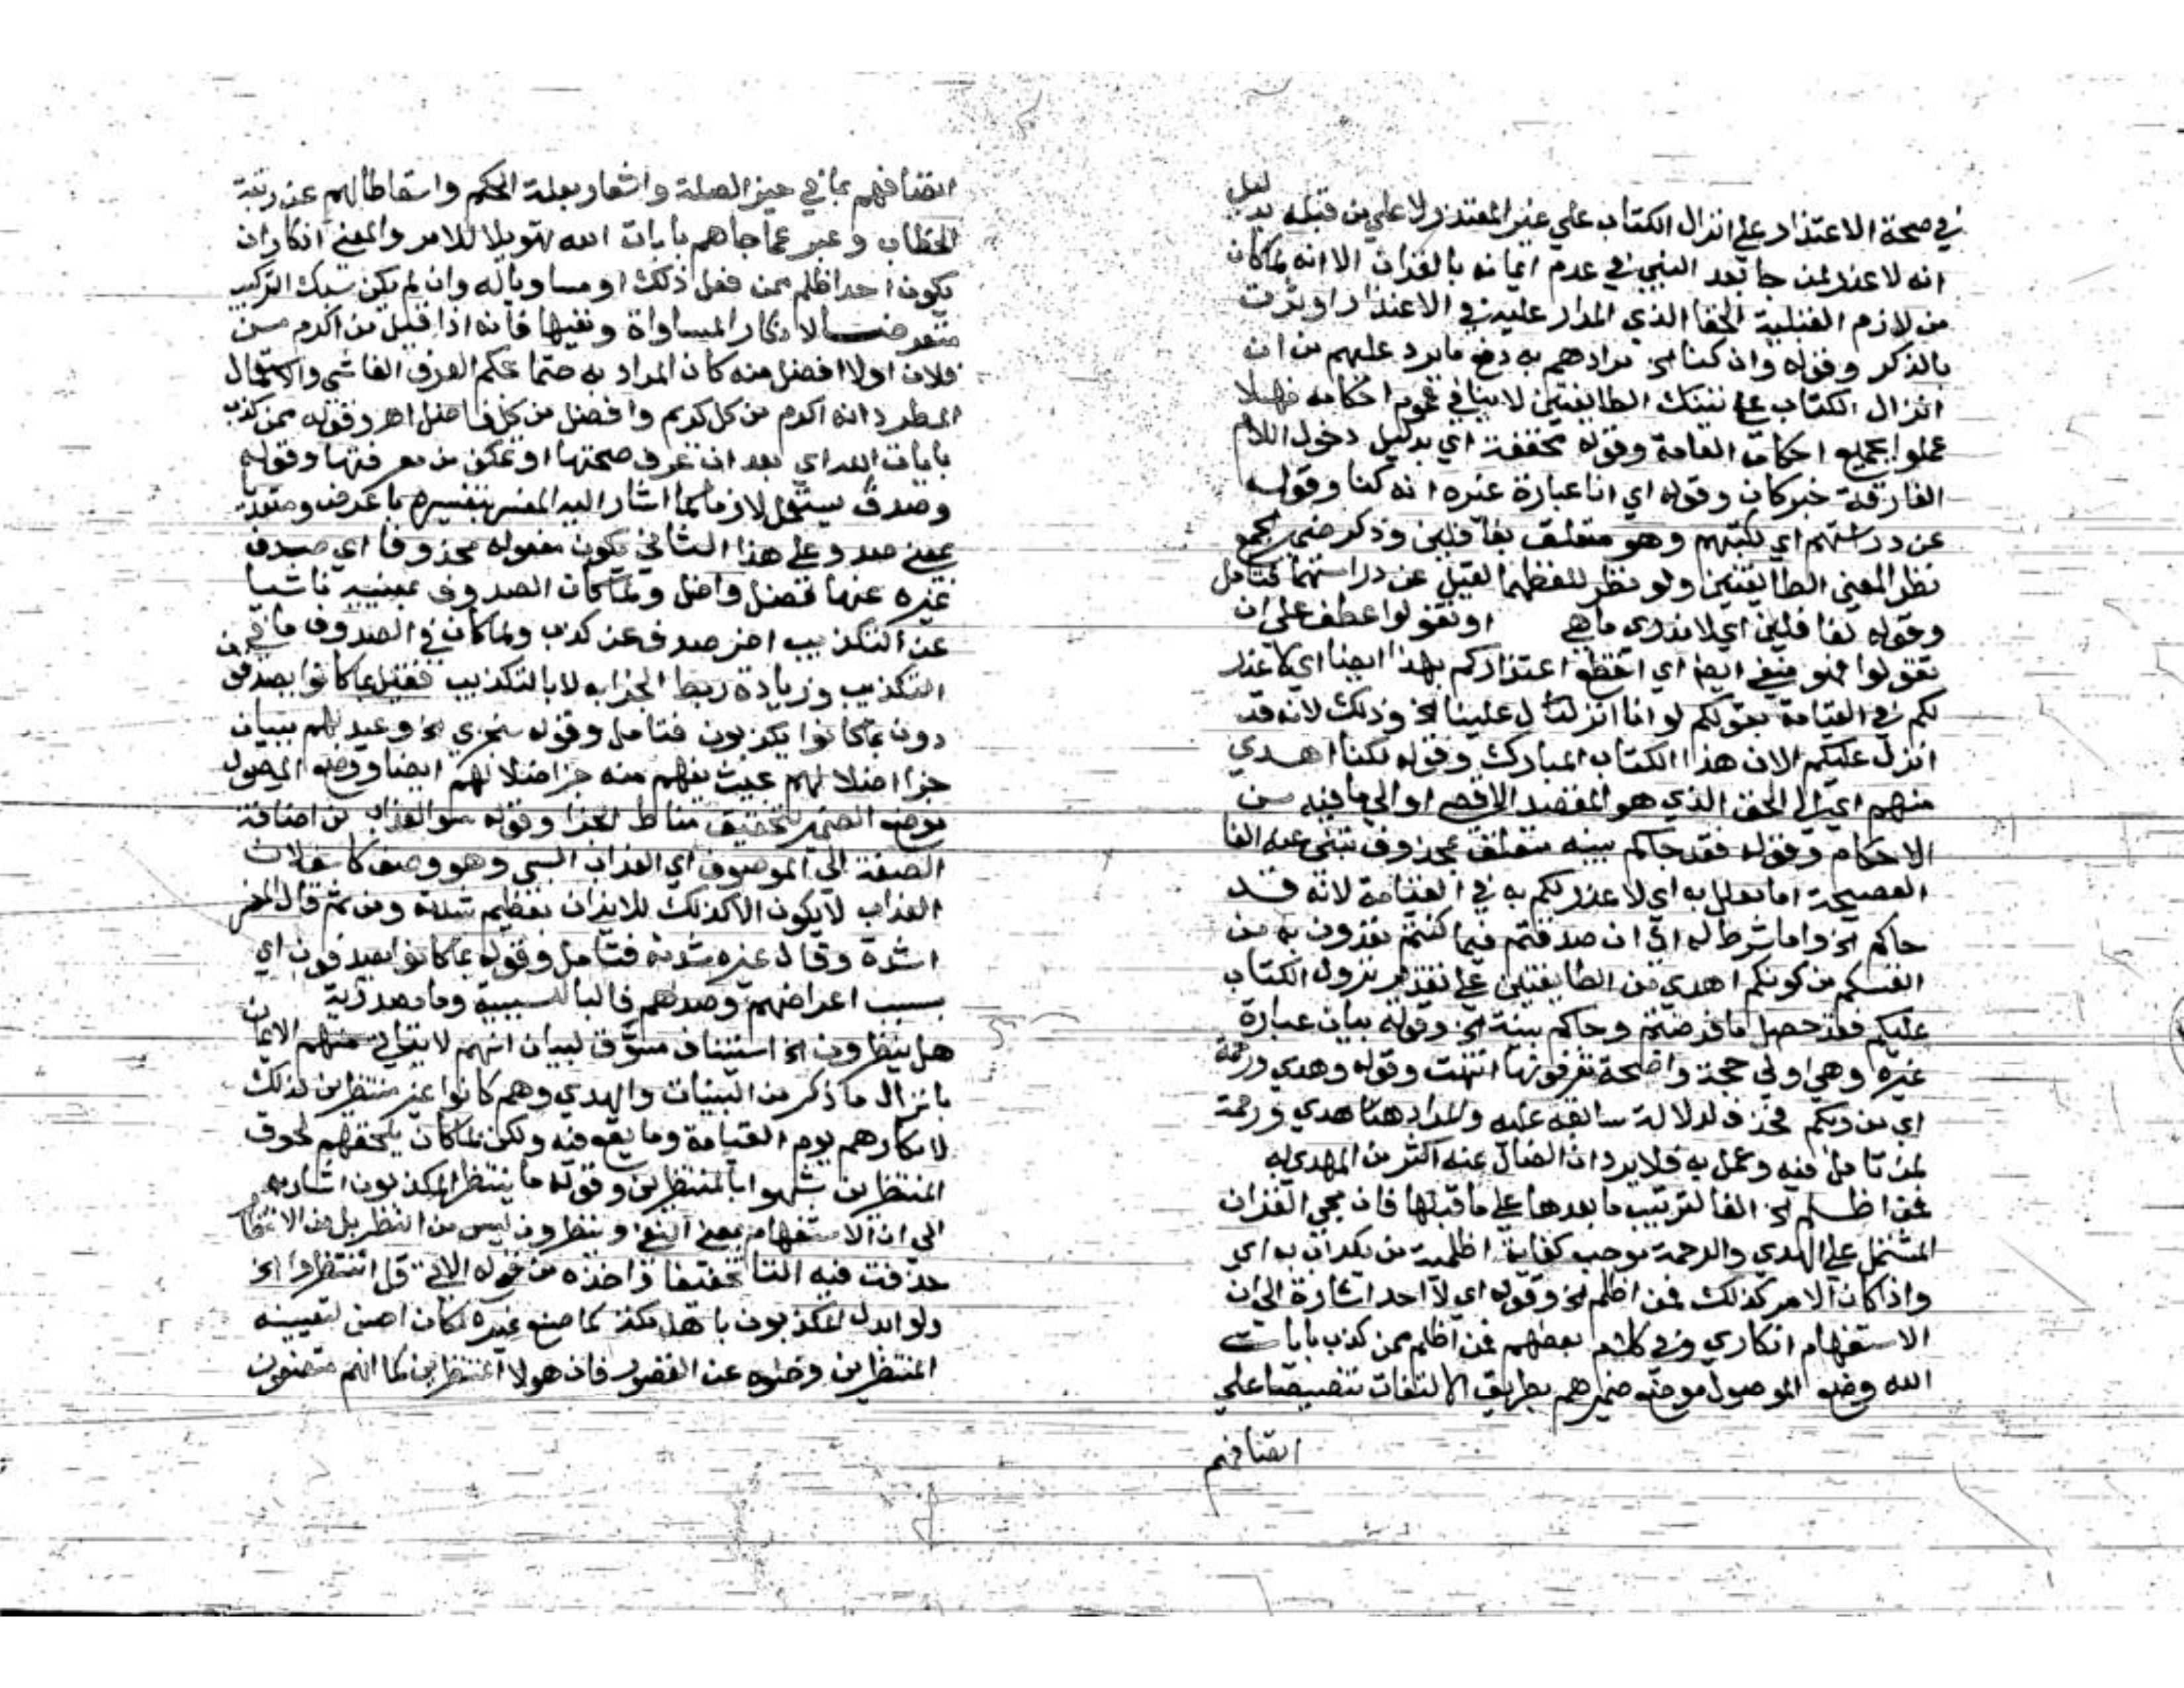 في صحة الاعتذار علي انزال الكتاب علي غير المعتذر ولا علي من قبله بدليل
انه لا عذر لمن جا بعد النبي في عدم ايمانه بالقران الا انه لما كان
من لازم القبلية الخفا الذي المدار عليه في الاعتذار اوثرت
بالذكر وقوله وان كنا الخ مرادهم به دفع ما يرد عليهم من ان
انزال الكتاب علي تينك الطايفتين لا ينافي عموم احكامه فهلا
عملوا بجميع احكامه العامة وقوله مخففة اي بدليل دخول اللام
الفارقة خبر كان وقوله اي انا عبارة غيره انه كنا وقوله
عن دراستهم اي كتبهم وهو متعلق بغافلين وذكر ضمير الجمع
نظر المعني الطايفتين ولو نظر للفظهما لقيل عن دراستهما فتامل
وقوله لغافلين اي لا ندري ما هي او تقولوا عطف علي ان
تقولوا فهو منفي ايضا اي اقطعوا اعتذاركم بهذا ايضا اي لا عذر
لكم في القيامة بقولكم لو انا انزل علينا الخ وذلك لانه قد
انزل عليكم الان هذا الكتاب المبارك وقوله لكنا اهدي
منهم اي الي الحق الذي هو المقصد الاقصي او الي ما فيه من
الاحكام وقوله فقد جاكم بينه متعلق بمحذوف تنبي عنه الفا
الفصيحة اما تعليل به اي لا عذر لكم به في القيامة لانه قد
جاكم الخ واما شرط له اي ان صدقتم فيما كنتم تعدون به من
انفسكم من كونكم اهدي من الطايفتين علي تقدير نزول الكتاب
عليكم فقد حصل ما فرضتم وجاكم بينة الخ وقوله بيان عبارة
غيره وهي اولي حجة واضحة تعرفونها انتهت وقوله وهدي ورحمة
اي من ربكم فحذف لدلالة سابقه عليه والمراد هنا هدي ورحمة
لمن تامل فيه وعمل به فلا يرد ان الضال عنه اكثر من المهدي به
فمن اظلم الخ الفا لترتيب ما بعدها علي ما قبلها فان مجي القران
المشتمل علي الهدي والرحمة يوجب كفاية اظلمية من يكذب به اي
واذا كان الامر كذلك فمن اظلم الخ وقوله اي لا احد اشارة الي ان
الاستفهام انكاري وفي كلام بعضهم فمن اظلم ممن كذب بايات
الله وضع الموصول موضع ضميرهم بطريق الالتفات تنصيصا علي
اتصافهم
اتصافهم بما في حيز الصلة واشعار بعلة الحكم واسقاطا لهم عن رتبة
الخطاب وعبر عما جاهم بايات الله تهويلا للامر والمعني انكار ان
يكون احد اظلم ممن فعل ذلك او مساويا له وان لم يكن سبك التركيب
متعرضا لانكار المساواة ونفيها فانه اذا قيل من اكرم من
فلان او لا افضل منه كان المراد به حتما بحكم العرف الفاشي والاستعمال
المطرد انه اكرم من كل كريم وافضل من كل فاضل اهـ وقوله ممن كذب
بايات الله اي بعد ان عرف صحتها او تمكن من معرفتها وقوله
وصدف يستعمل لازما كما اشار اليه المفسر بتفسيره باعرض ومتعديا
بمعني صد وعلي هذا الثاني يكون مفعوله محذوفا اي صدف
غيره عنها فضل واضل ولما كان الصدوف بمعنييه ناشيا
عن التكذيب اخر صدف عن كذب ولما كان في الصدوف ما في من
التكذيب وزيادة ربط الجزا به لا بالتكذيب فقيل بما كانوا يصدفون
دون بما كانوا يكذبون فتامل وقوله سنجزي الخ وعيد لهم ببيان
جزا اضلالهم بحيث يفهم منه جزا ضلالهم ايضا ووضع الموصول
موضع الضمير لتحقيق مناط الجزا وقوله سو العذاب من اضافة
الصفة الي الموصوف اي العذاب السيي وهو وصف كاشف لان
العذاب لا يكون الا كذلك للايذان بعظيم شدته ومن ثم قال المفسر
اشده وقال غيره شدته فتامل وقوله بما كانوا يصدفون اي
بسبب اعراضهم وصدهم فالبا للسببية وما مصدرية
هل ينظرون الخ استيناف مسوق لبيان انهم لا يتاتي منهم الايمان
بانزال ما ذكر من البينات والهدي وهم كانوا غير منتظرين لذلك
لانكارهم يوم القيامة وما يقع فيه ولكن لما كان يلحقهم لحوق
المنتظرين شبهوا بالمنتظرين وقوله ما ينتظر المكذبون اشار به
الي ان الاستفهام بمعني النفي وينظرون ليس من النظر بل من الانتظار
حذفت فيه التا تخفيفا واخذه من قوله الاتي قل انتظروا الخ
ولو ابدل المكذبون باهل مكة كما صنع غيره لكان احسن لتعيينه
المنتظرين وخلوه عن القصور فان هولا المنتظرين كما انهم متصفون